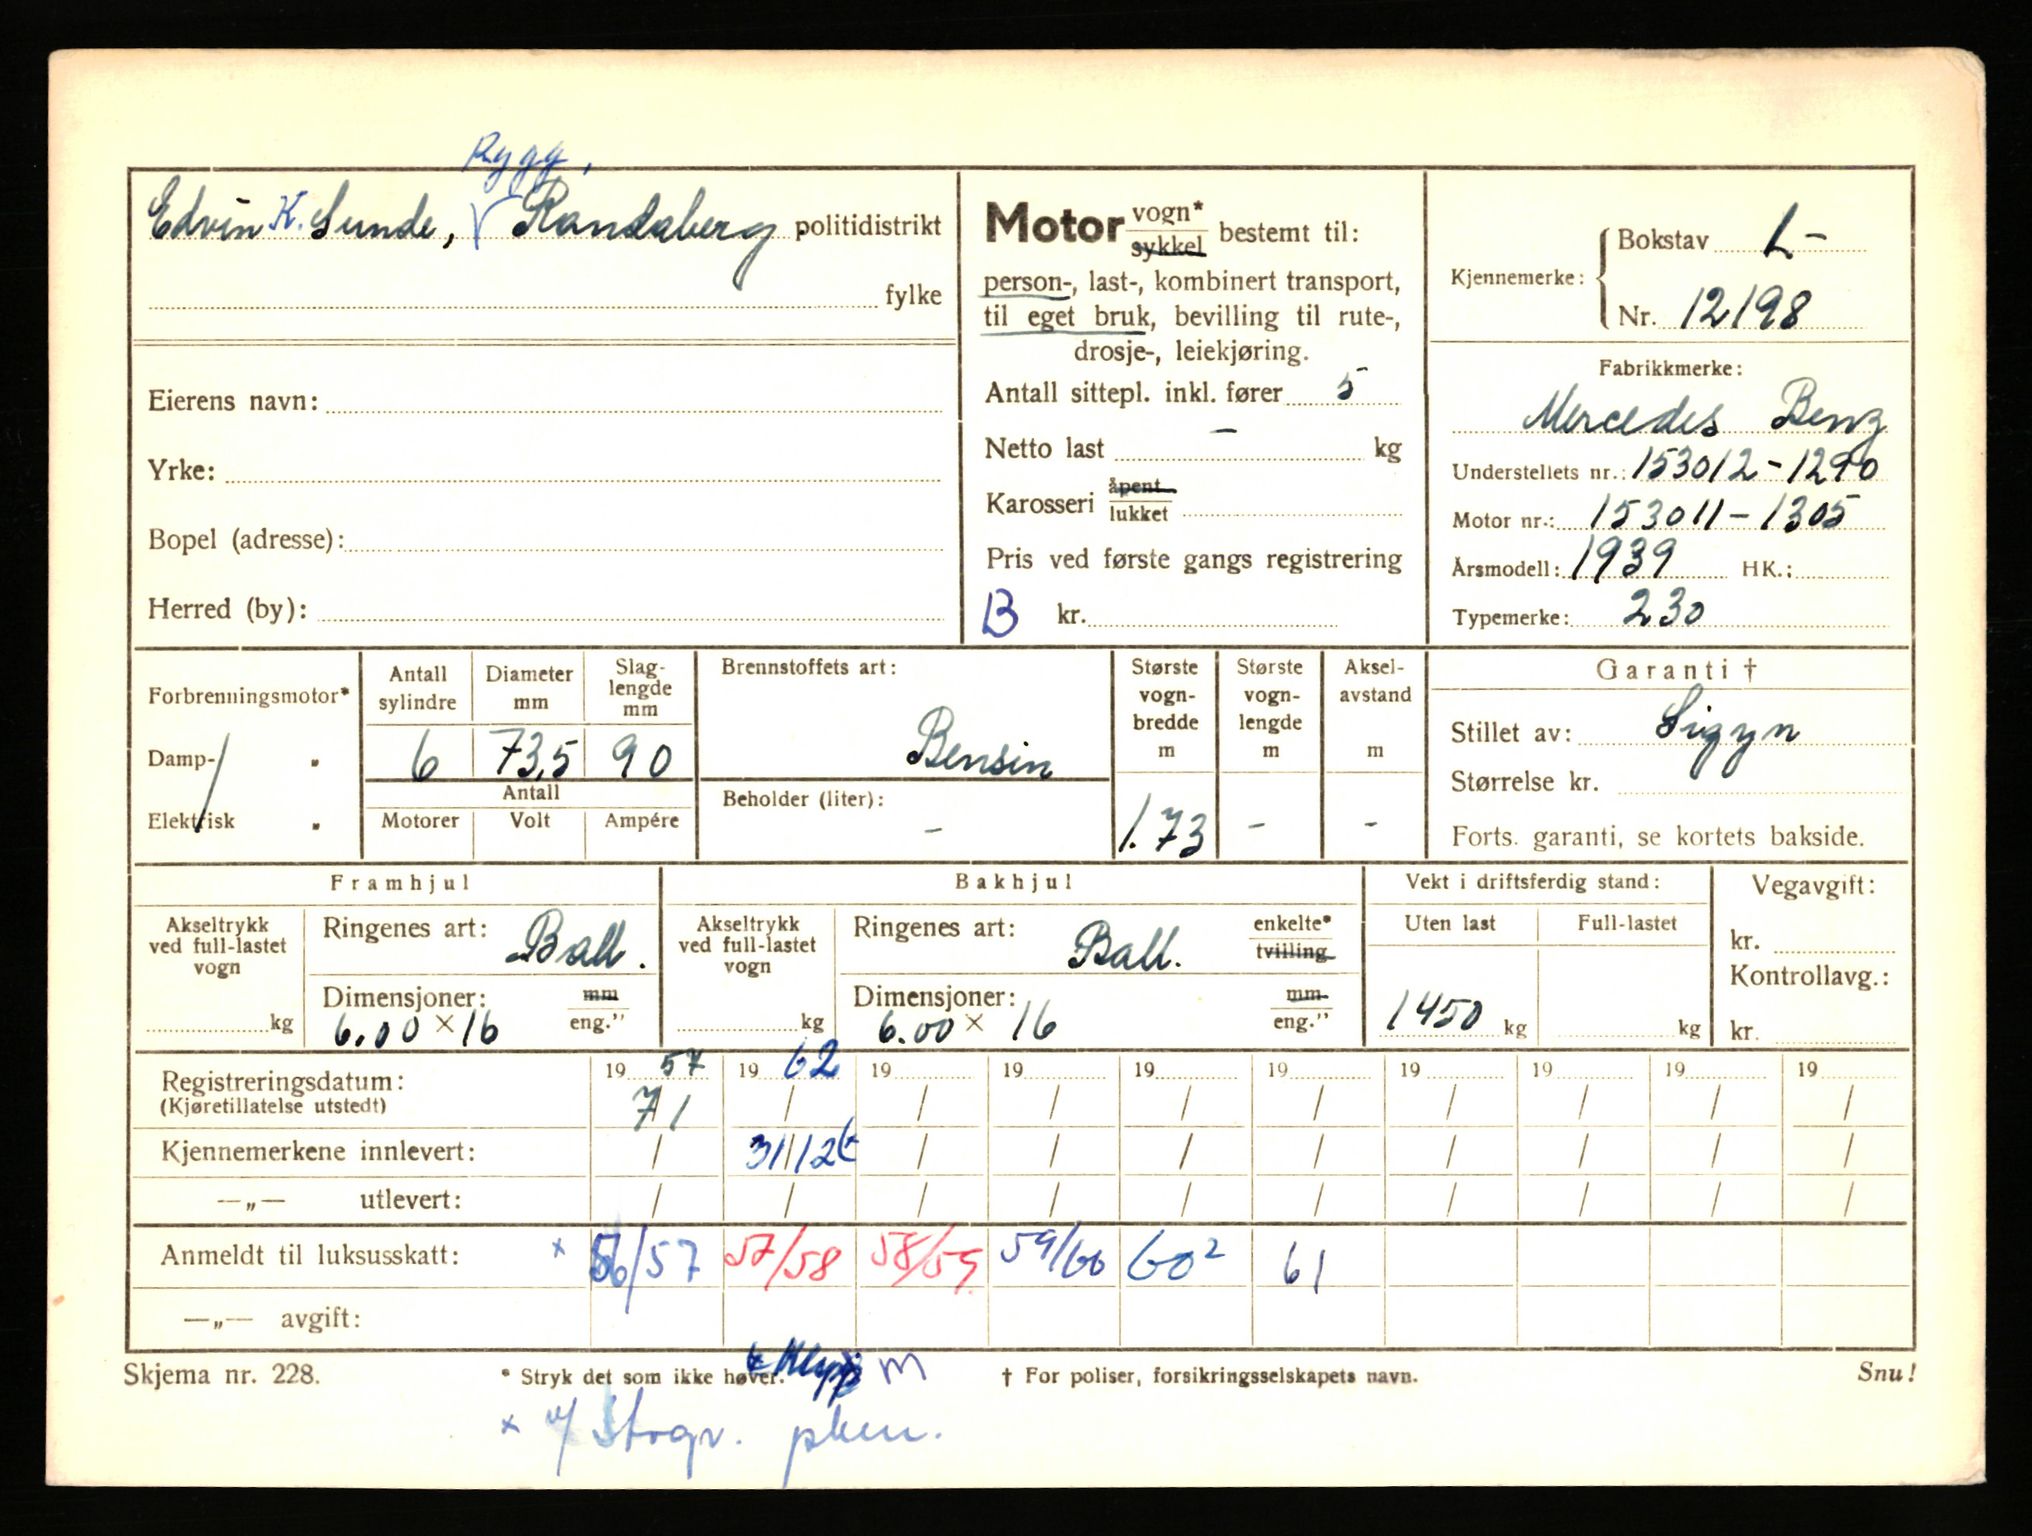 Rygg,
Edvin K. Sunde, Randaberg politidistrikt
fylke
Eierens navn:
Yrke:
Bopel (adresse):
Herred (by):
Motor vogn* sykkel bestemt til:
person-, last-, kombinert transport,
til eget bruk, bevilling til rute-,
drosje-, leiekjøring.
Antall sittepl. inkl. fører 5
Netto last – kg
Karosseri åpent lukket
Pris ved første gangs registrering
B kr.
Kjennemerke:
Bokstav L-
Nr. 12198
Fabrikkmerke:
Mercedes Benz
Understellets nr.: 153012-1290
Motor nr.: 153011-1305
Årsmodell: 1939 HK.:
Typemerke: 230
Forbrenningsmotor*
Damp- "
Elektrisk "
Antall sylindre
6
Diameter mm
73,5
Slaglengde mm
90
Antall
Motorer Volt Ampére
Brennstoffets art:
Bensin
Beholder (liter):
–
Største vognbredde m
1.73
Største vognlengde m
–
Akselavstand m
–
Garanti †
Stillet av: Sigyn
Størrelse kr.
Forts. garanti, se kortets bakside.
Framhjul
Akseltrykk ved full-lastet vogn
kg
Ringenes art: Ball.
Dimensjoner: mm eng."
6.00 × 16
Bakhjul
Akseltrykk ved full-lastet vogn
kg
Ringenes art: Ball. enkelte* tvilling
Dimensjoner: mm eng."
6.00 × 16
Vekt i driftsferdig stand:
Uten last Full-lastet
1450 kg kg
Vegavgift:
kr.
Kontrollavg.:
kr.
Registreringsdatum: 19 57 19 62 19 19 19 19 19 19 19 19
(Kjøretillatelse utstedt) 7/1 / / / / / / / / /
Kjennemerkene innlevert: / 31/12 / / / / / / / /
—„— utlevert: / / / / / / / / / /
Anmeldt til luksusskatt: × 56/57 57/58 58/59 59/60 60² 61
—„— avgift:
Skjema nr. 228. * Stryk det som ikke høver. Klepp m † For poliser, forsikringsselskapets navn. Snu!
×